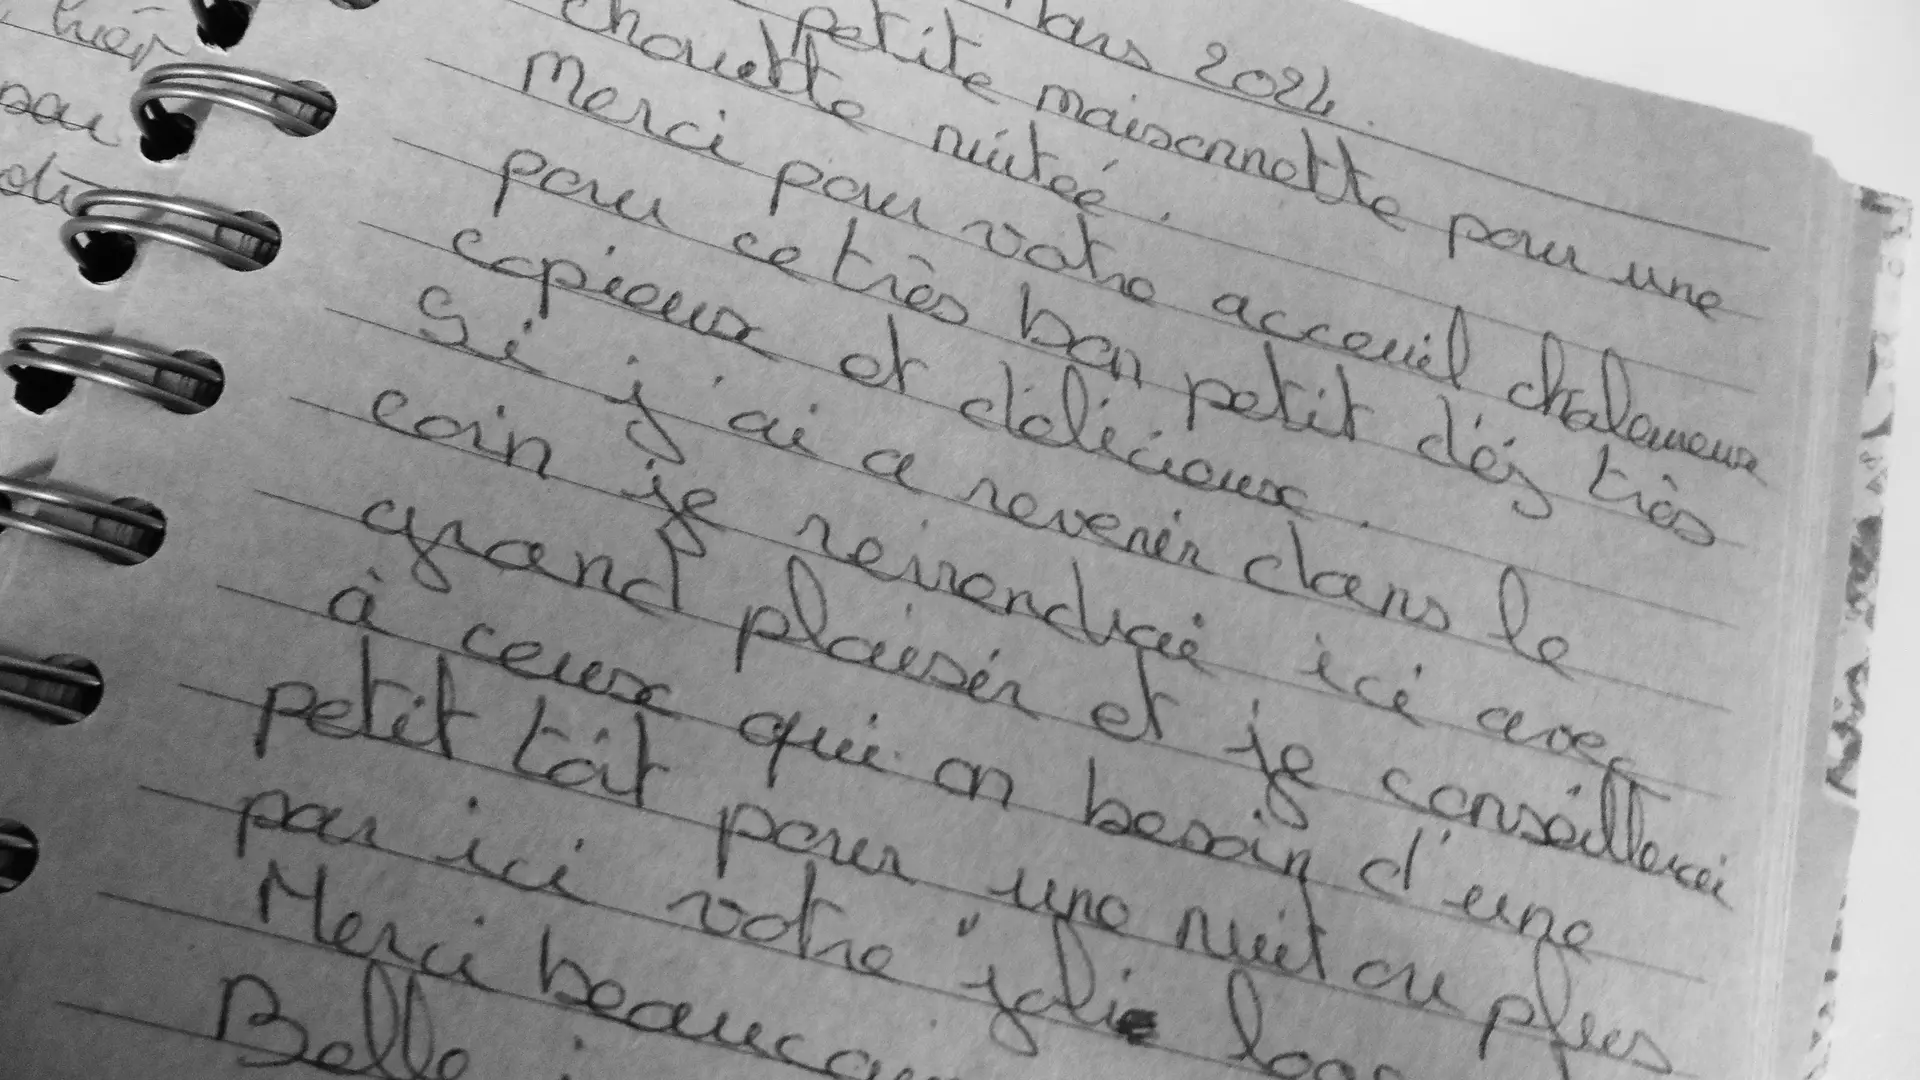 hier
pour
Mars 2024.
petite maisonnette pour une
chouette nuitéé.
Merci pour votre acceuil chaleureux
pour ce très bon petit déj très
copieux et délicieux.
Si j'ai a revenir dans le
coin je reivendrai ici avec
grand plaisir et je conseillerai
à ceux qui on besoin d'une
petit toit pour une nuit ou plus
par ici votre "jolie
Merci
Belle